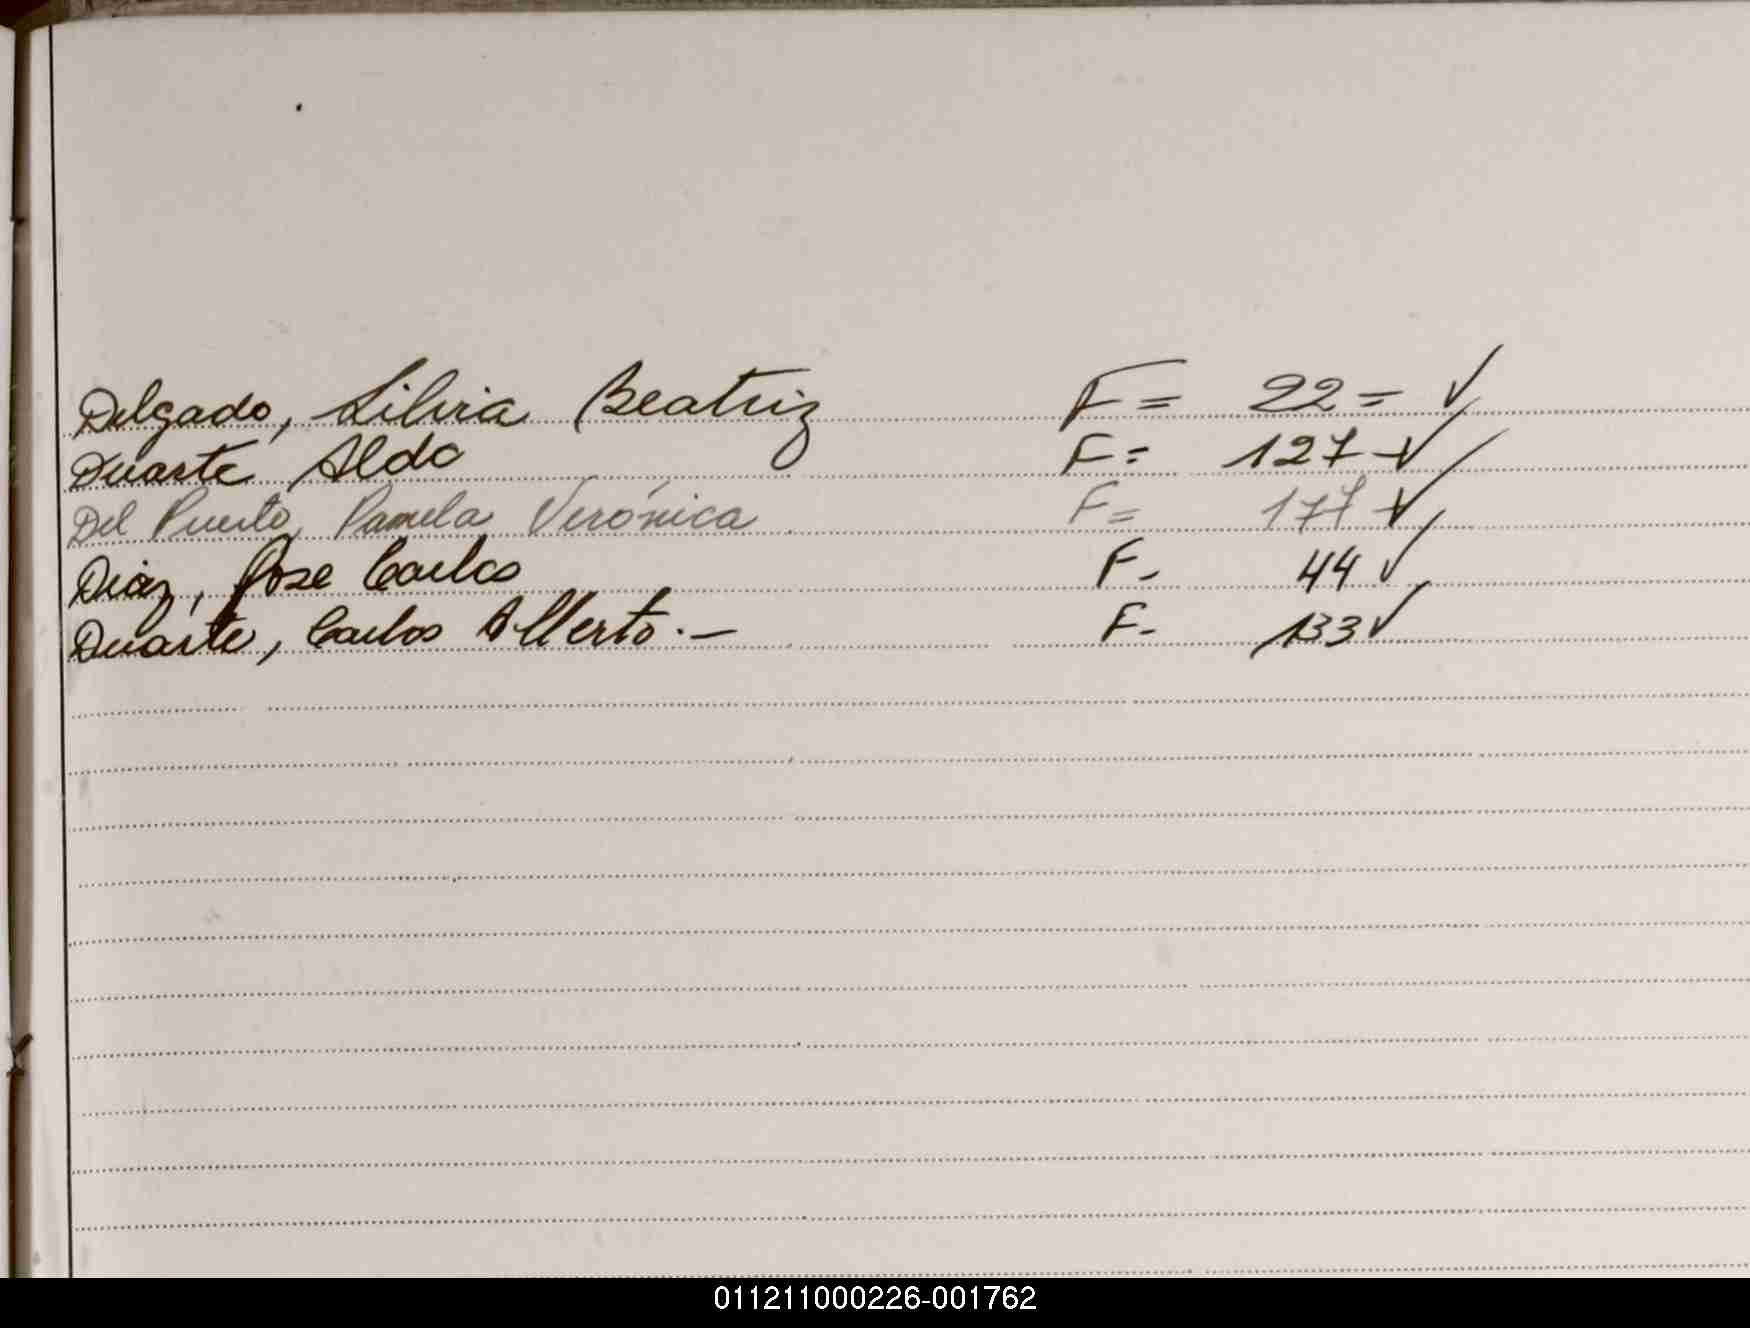 Delgado, Silvia Beatriz F= 22= ✓
Duarte, Aldo F= 127- ✓
Del Puerto, Pamela Verónica F= 177 ✓
Diaz, Jose Carlos F- 44 ✓
Duarte, Carlos Alberto.- F- 133 ✓
011211000226-001762